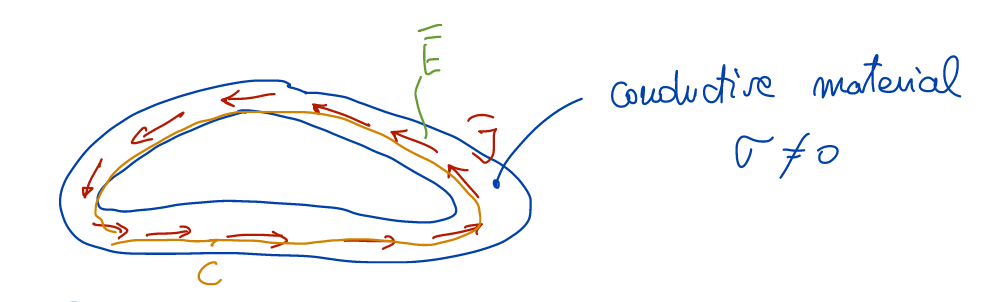 E̅
J̅
conductive material
σ ≠ 0
C